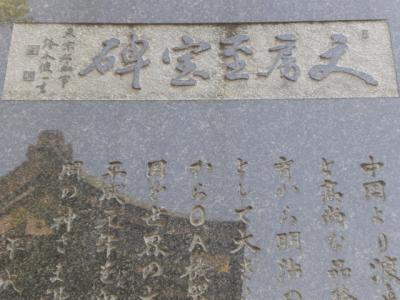 文房至宝碑
中国より渡
と高尚な品格
育から明治の
として大き
からOA機
国を世界の
平成元年を
の神さま
平成